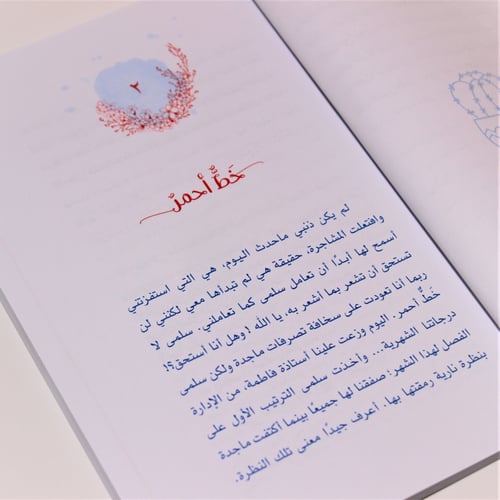 ٢
خَطٌّ أَحمرٌ
لم يكن ذنبي ماحدث اليوم، هي التي استفزتني
وافتعلت المشاجرة، حقيقة هي لم تبدأها معي لكنني لن
أسمح لها أبدًا أن تعامل سلمى كما تعاملني. سلمى لا
تستحق أن تشعر بما أشعر به، يا الله ! وهل أنا أستحق؟!
ربما أنا تعودت على سخافة تصرفات ماجدة ولكن سلمى
خطٌّ أحمر. اليوم وزعت علينا أستاذة فاطمة، من الإدارة
درجاتنا الشهرية... وأخذت سلمى الترتيب الأول على
الفصل لهذا الشهر؛ صفقنا لها جميعًا بينما أكتفت ماجدة
بنظرة نارية رمقتها بها. أعرف جيدًا معنى تلك النظرة.